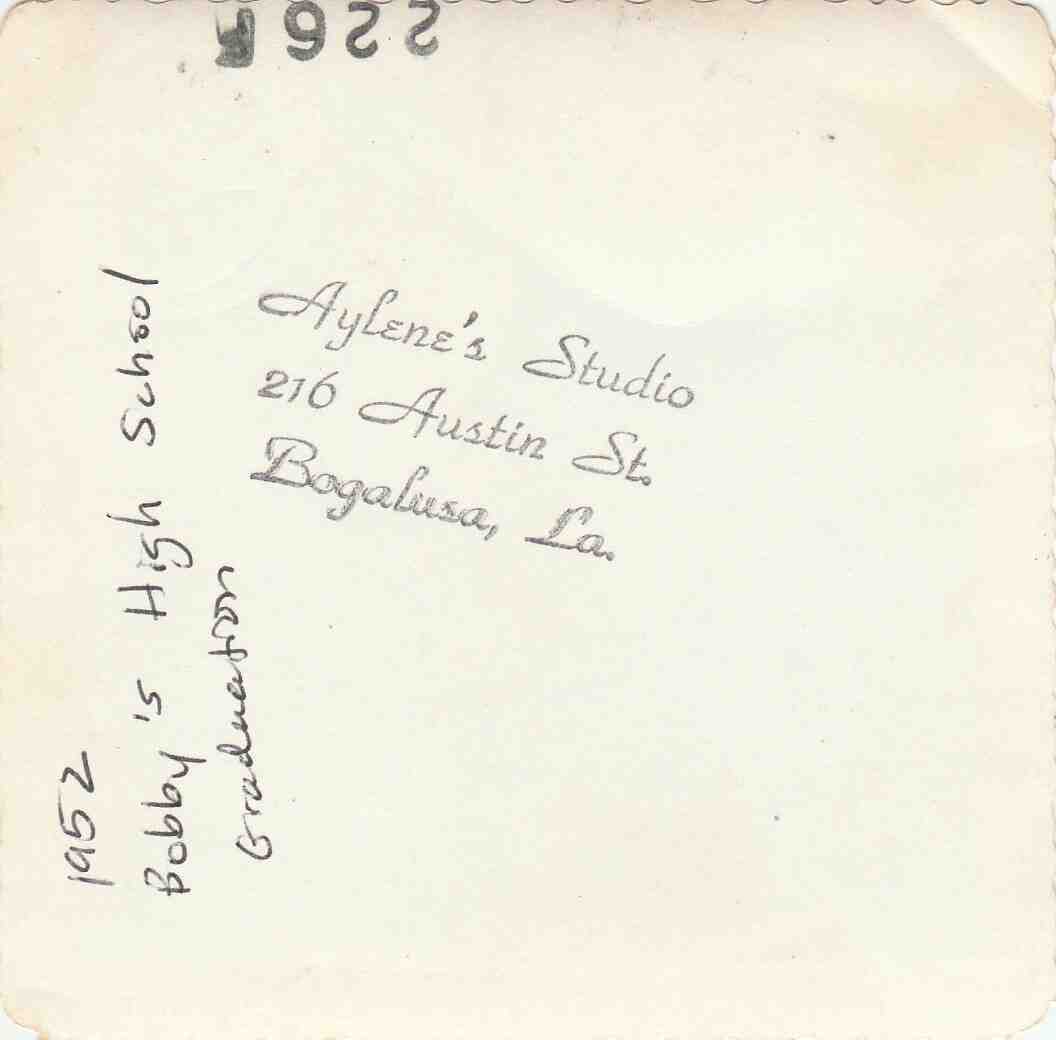 1952
Bobby's High School
Graduation
Aylene's Studio
216 Austin St.
Bogalusa, La.
226